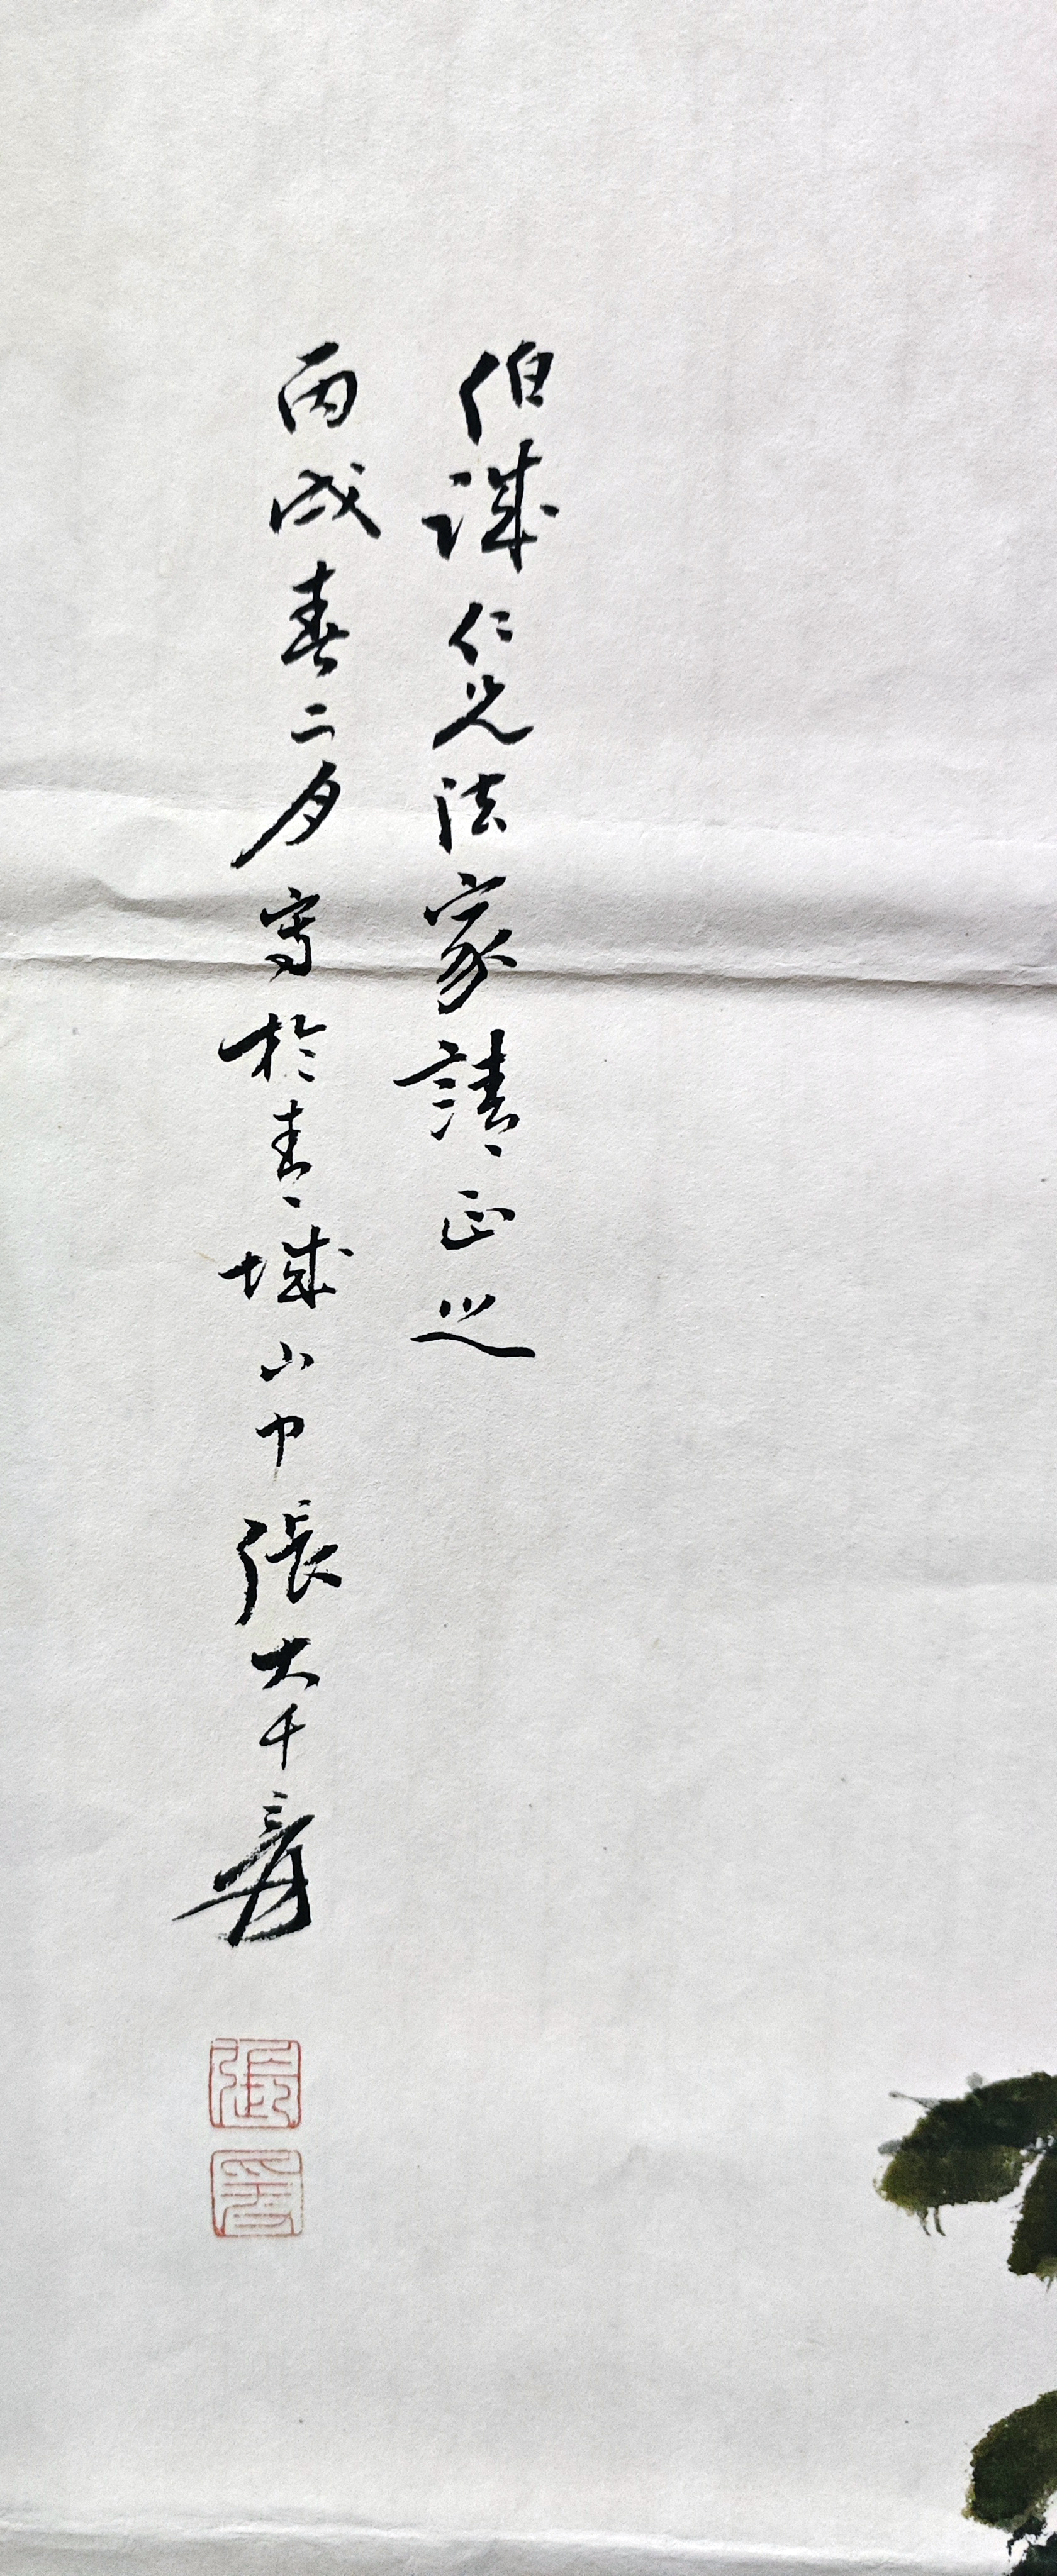 伯誠仁兄法家請正之
丙戌春二月寫於青城山中張大千爰
張
爰